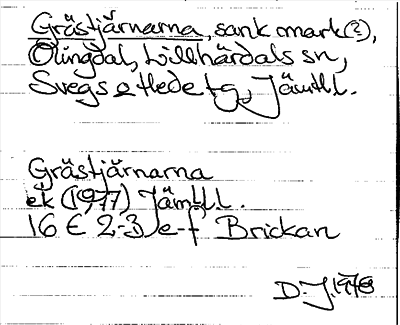 Grästjärnarna, sank mark(?),
Olingdal, Lillhärdals sn,
Svegs o Hede tg, Jämtl l.
Grästjärnarna
ek (1977) Jämtl l.
16 E 2-3 e-f Brickan
D.J. 1978